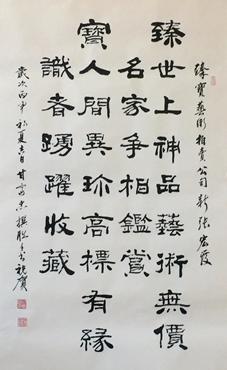 臻寶藝術拍賣公司新張宏發
臻世上神品藝術無價
名家爭相鑑賞
寶人間異珍高標有緣
識者踴躍收藏
歲次丙申初夏吉日甘
撰聯并書祝賀